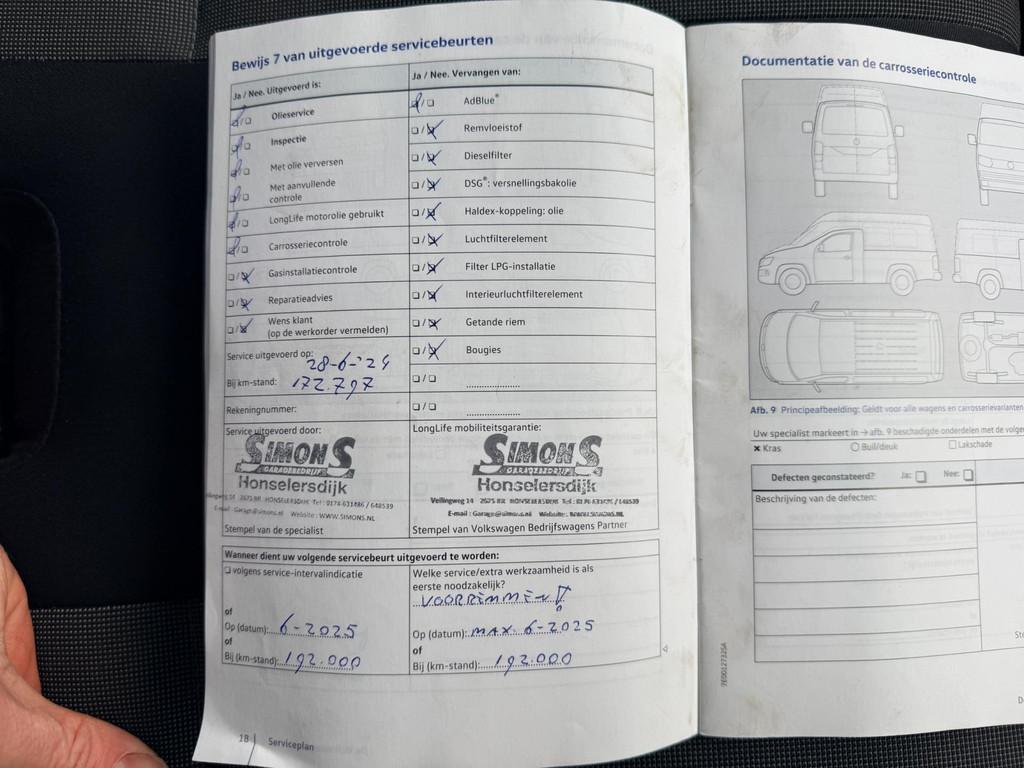 Bewijs 7 van uitgevoerde servicebeurten
Ja / Nee. Uitgevoerd is:
Olieservice
Inspectie
Met olie verversen
Met aanvullende
controle
LongLife motorolie gebruikt
Carrosseriecontrole
Gasinstallatiecontrole
Reparatieadvies
Wens klant
(op de werkorder vermelden)
Service uitgevoerd op:
28-6-'24
Bij km-stand: 172.797
Rekeningnummer:
Service uitgevoerd door:
SIMONS
GARAGEBEDRIJF
Honselersdijk
HONSELERSDIJK Tel: 0174-631486 / 648539
E-mail: Garage@simons.nl Website: WWW.SIMONS.NL
Stempel van de specialist
Ja / Nee. Vervangen van:
AdBlue®
Remvloeistof
Dieselfilter
DSG®: versnellingsbakolie
Haldex-koppeling: olie
Luchtfilterelement
Filter LPG-installatie
Interieurluchtfilterelement
Getande riem
Bougies
LongLife mobiliteitsgarantie:
SIMONS
GARAGEBEDRIJF
Honselersdijk
Veilingweg 14 2675 BR HONSELERSDIJK Tel: 0174-631486 / 648539
E-mail: Garage@simons.nl Website: WWW.SIMONS.NL
Stempel van Volkswagen Bedrijfswagens Partner
Wanneer dient uw volgende servicebeurt uitgevoerd te worden:
volgens service-intervalindicatie
of
Op (datum): 6-2025
of
Bij (km-stand): 192.000
Welke service/extra werkzaamheid is als
eerste noodzakelijk?
VOORREMMEN!
Op (datum): MAX. 6-2025
of
Bij (km-stand): 192.000
18 | Serviceplan
Documentatie van de carrosseriecontrole
Afb. 9 Principeafbeelding: Geldt voor alle wagens en carrosserievarianten
Uw specialist markeert in → afb. 9 beschadigde onderdelen met de volge
× Kras
Buil/deuk
Lakschade
Defecten geconstateerd? Ja: Nee:
Beschrijving van de defecten: